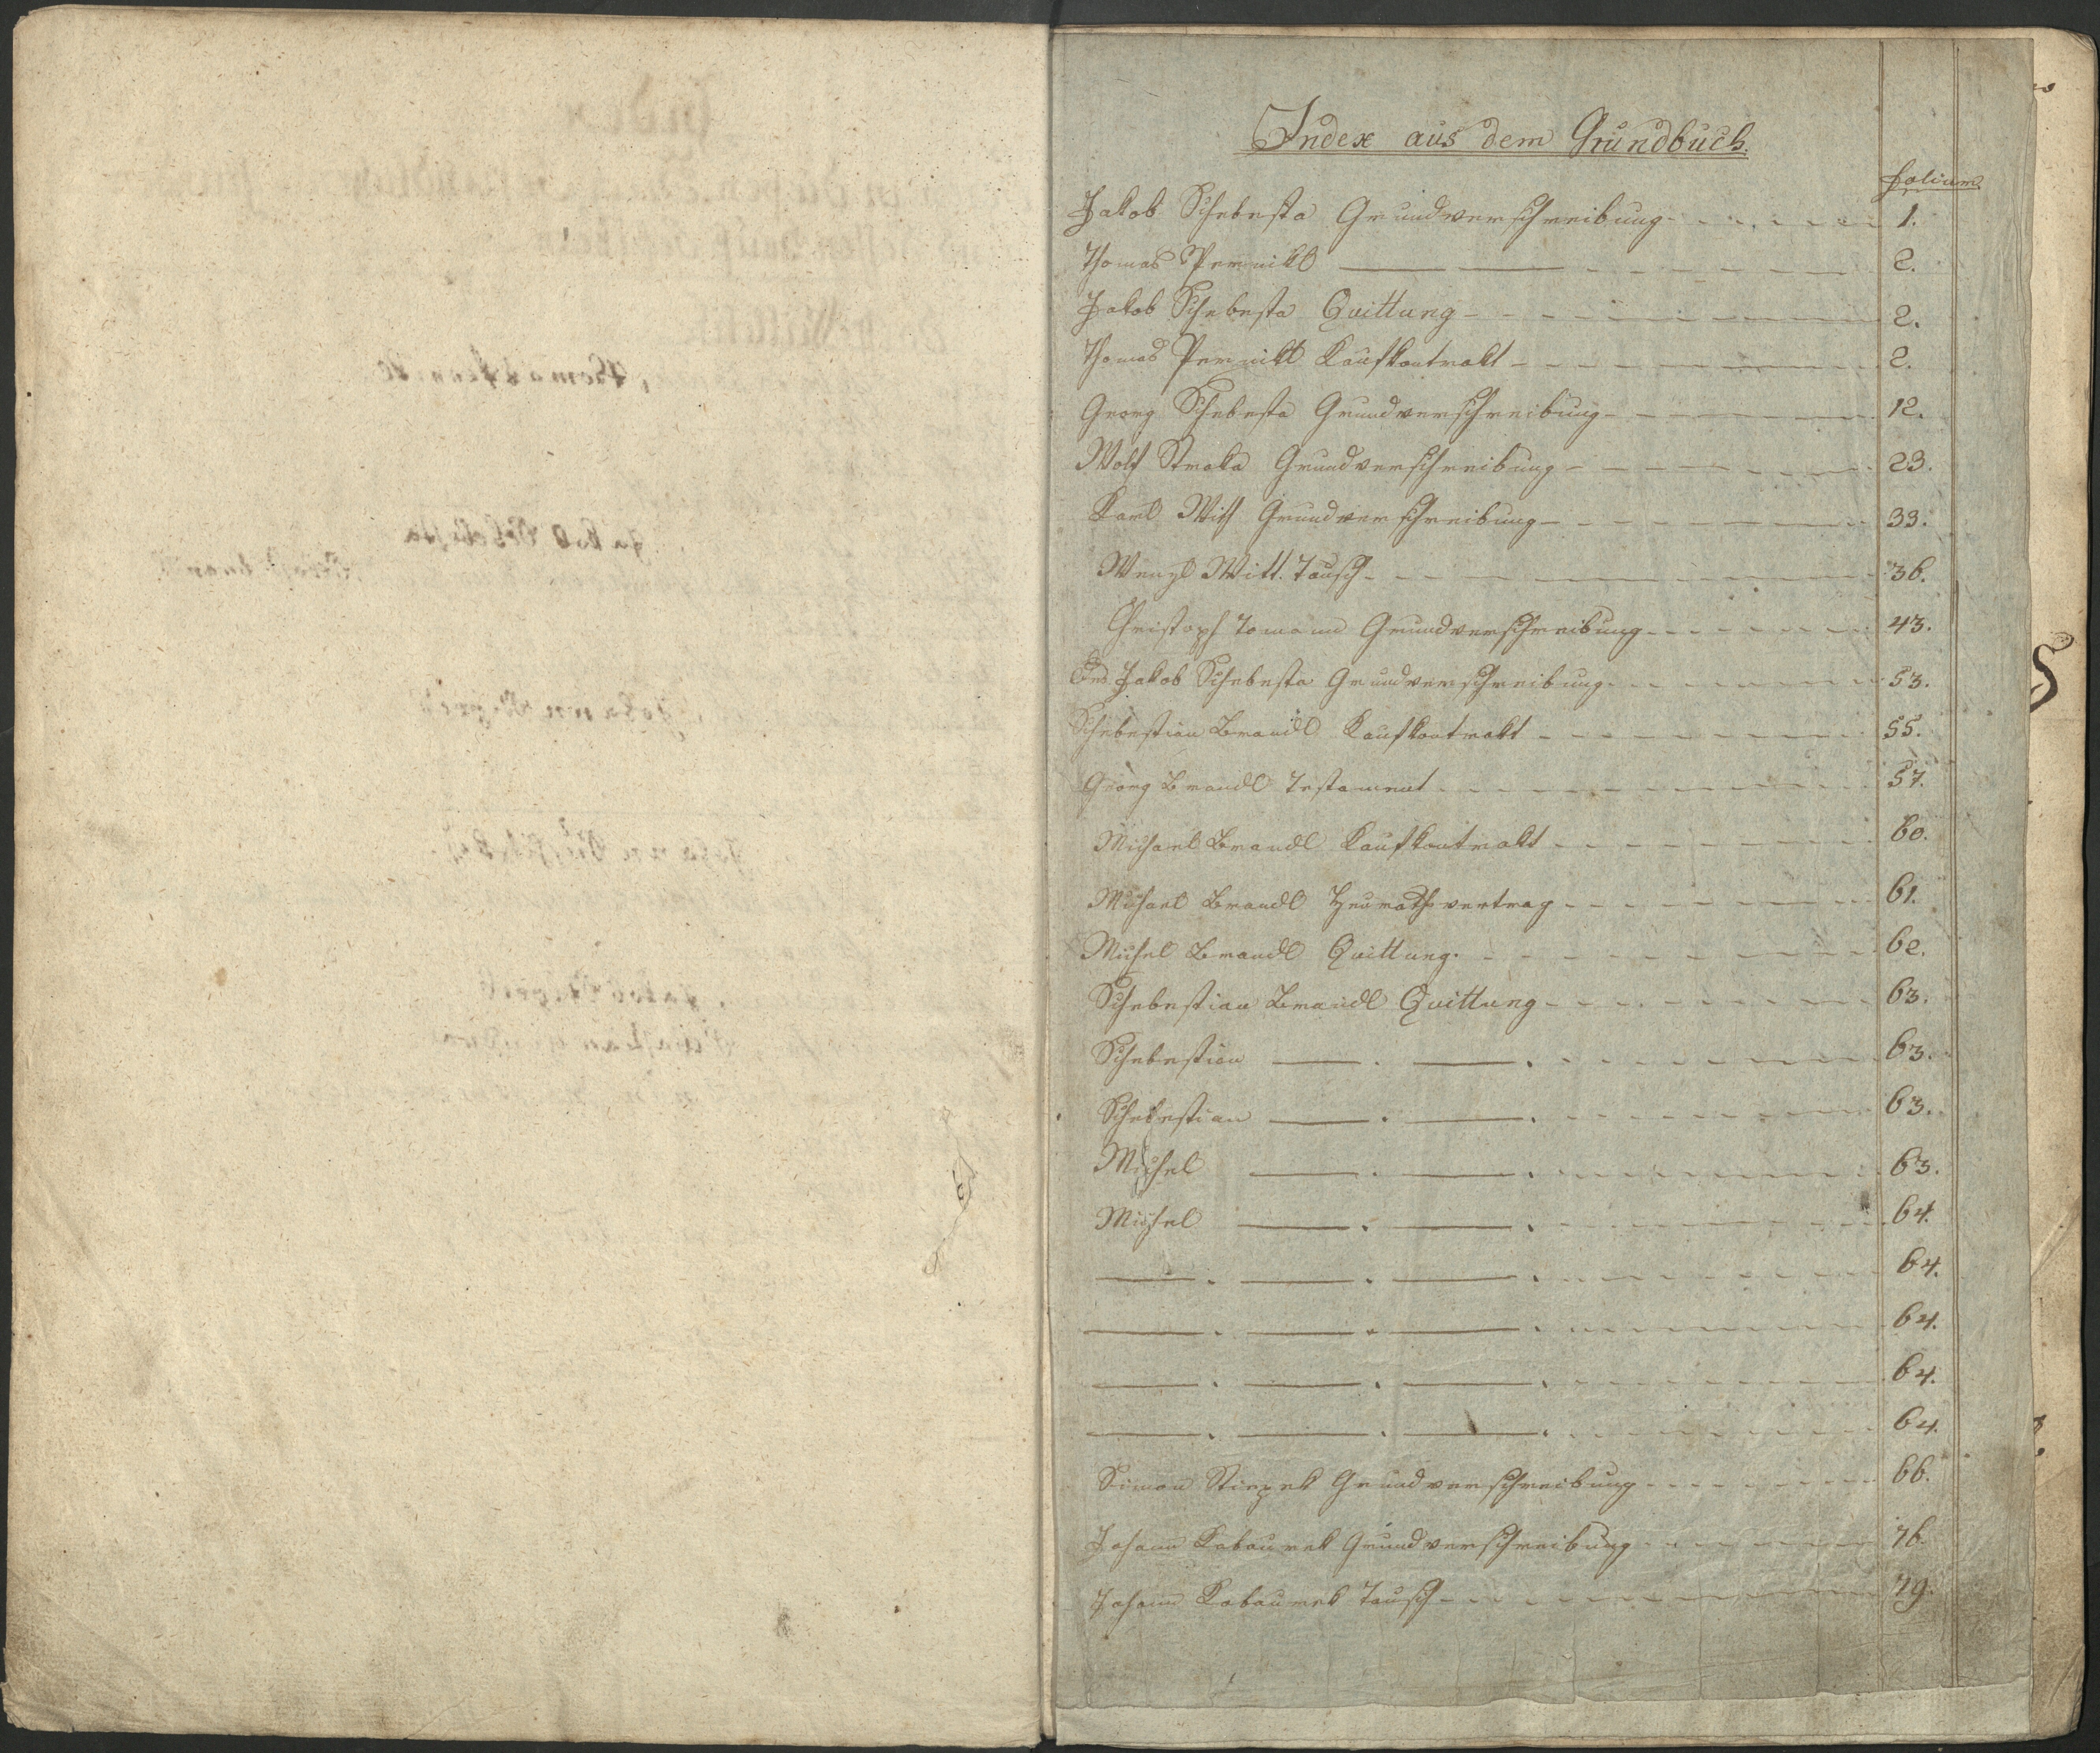 Index aus dem Grundbuch.
folium
Jakob Schebesta Grundverschreibung 1.
Thomas Pernikl — — 2.
Jakob Schebesta Quittung 2.
Thomas Pernikl Kaufkontrakt 2.
Georg Schebesta Grundverschreibung 12.
Wolf Straka Grundverschreibung 23.
Karl Witt Grundverschreibung 33.
Wenzl Witt. Tausch 36.
Christoph Tomann Grundverschreibung 43.
Jakob Schebesta Grundverschreibung 53.
Schebestian Brandl Kaufkontrakt 55.
Georg Brandl Testament 57.
Michael Brandl Kaufkontrakt 60.
Michael Brandl Heurathsvertrag 61.
Michel Brandl Quittung. 62.
Schebestian Brandl Quittung 63.
Schebestian — . — . 63.
Schebestian — . — . 63.
Michel — . — . 63.
Michel — . — . 64.
— . — . — . 64.
— . — . — . 64.
— . — . — . 64.
— . — . — . 64.
Simon Grundverschreibung 66.
Johann Kabaurek Grundverschreibung 76.
Johann Kabaurek Tausch 79.